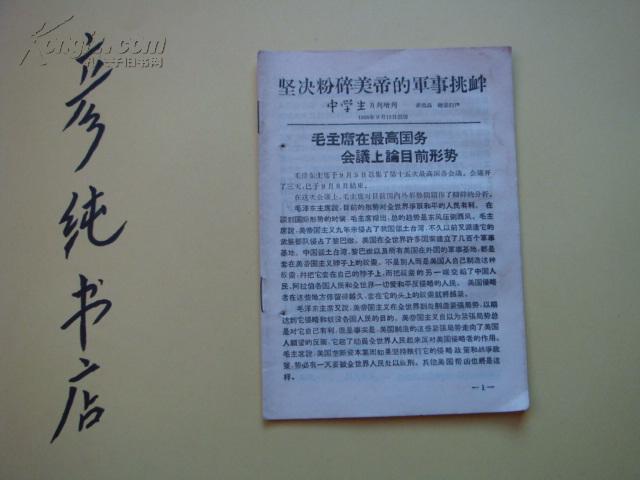 彦纯书店
坚决粉碎美帝的軍事挑衅
中学生 月刊增刊
1958年9月12日出版
毛主席在最高国务
会議上論目前形势
毛泽东主席于9月5日召集了第十五次最高国务会議。会議开
了三天,已于9月8日結束。
在这次会議上,毛主席对目前国内外形势問題作了精辟的分析。
毛泽东主席說,目前的形势对全世界爭取和平的人民有利。在
談到国际形势的时候,毛主席指出,总的趋势是东风压倒西风。毛主
席說,美帝国主义九年来侵占了我国領土台湾,不久以前又派遣它的
武装部队侵占了黎巴嫩。美国在全世界許多国家建立了几百个軍事
基地。中国領土台湾、黎巴嫩以及所有美国在外国的軍事基地,都是
套在美帝国主义脖子上的絞索。不是別人而是美国人自己制造这种
絞索,并把它套在自己的脖子上,而把絞索的另一端交給了中国人
民、阿拉伯各国人民和全世界一切爱和平反侵略的人民。美国侵略
者在这些地方停留得越久,套在它的头上的絞索就将越紧。
毛泽东主席又說,美帝国主义在全世界到处制造紧張局势,以期
达到它侵略和奴役各国人民的目的。美帝国主义自以为紧張局势总
是对它自己有利,但是事实是,美国制造的这些紧張局势走向了美国
人願望的反面,它起了动員全世界人民起来反对美国侵略者的作用。
毛主席說,美国垄断資本集团如果坚持推行它的侵略政策和战爭政
策,势必有一天要被全世界人民处以絞刑。其他美国帮凶也将是这
样。
—1—